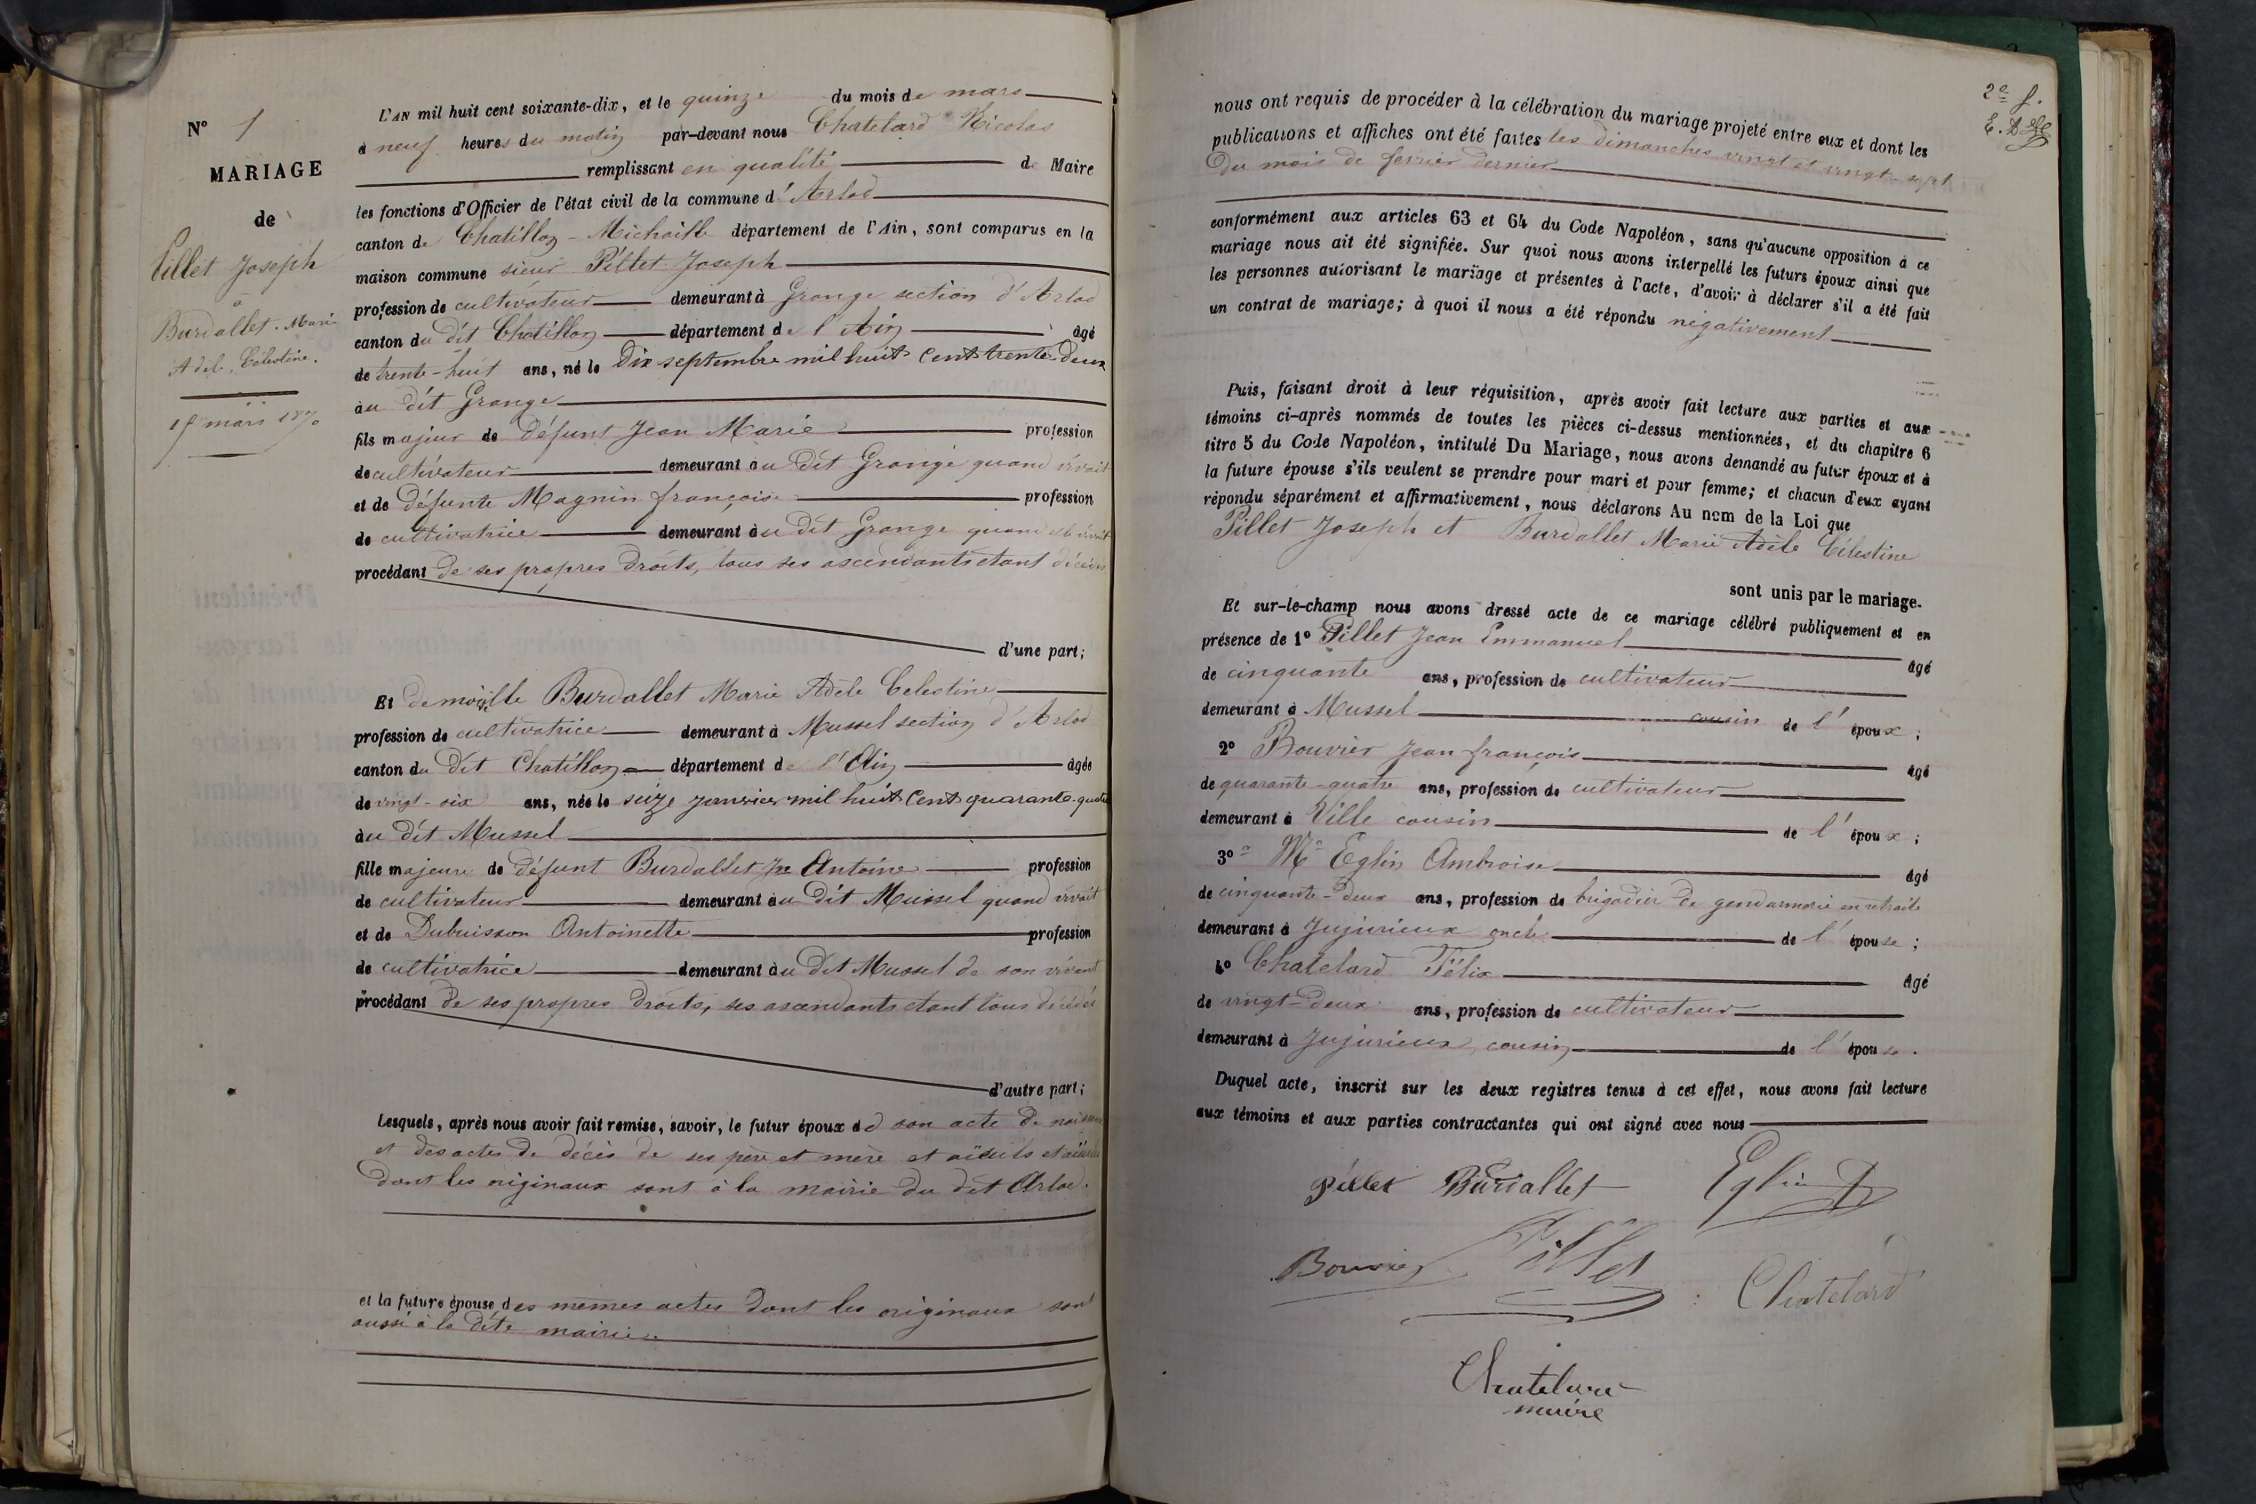 N° 1
MARIAGE
de
Pillet Joseph
à
Burdallet Marie
Adèle Célestine.
15 mars 1870
L'AN mil huit cent soixante-dix, et le quinze du mois de mars
à neuf heures du matin par-devant nous Chatelard Nicolas
remplissant en qualité de Maire
les fonctions d'Officier de l'état civil de la commune d'Arlod
canton de Chatillon-Michaille département de l'Ain, sont comparus en la
maison commune sieur Pillet Joseph
profession de cultivateur demeurant à Grange section d'Arlod
canton du dit Chatillon département de l'Ain âgé
de trente-huit ans, né le Dix septembre mil huit cent trente-deux
au dit Grange
fils majeur de défunt Jean Marie profession
de cultivateur demeurant au dit Grange quand vivait
et de défunte Magnin françoise profession
de cultivatrice demeurant au dit Grange quand vivait
procédant de ses propres droits, tous ses ascendants étant décédés
d'une part;
Et demoiselle Burdallet Marie Adèle Celestine
profession de cultivatrice demeurant à Mussel section d'Arlod
canton du dit Chatillon département de l'Ain âgée
de vingt-six ans, née le seize janvier mil huit cent quarante-quatre
au dit Mussel
fille majeure de défunt Burdallet Jn Antoine profession
de cultivateur demeurant au dit Mussel quand vivait
et de Dubuisson Antoinette profession
de cultivatrice demeurant au dit Mussel de son vivant
procédant de ses propres droits, ses ascendants étant tous décédés
d'autre part;
Lesquels, après nous avoir fait remise, savoir, le futur époux de son acte de naissance
et des actes de décès de ses père et mère et aïeuls et aïeules
dont les originaux sont à la mairie du dit Arlod.
et la future épouse des mêmes actes dont les originaux sont
aussi à la dite mairie
2e f.
nous ont requis de procéder à la célébration du mariage projeté entre eux et dont les
publications et affiches ont été faites les dimanches vingt et vingt-sept
du mois de fevrier dernier
conformément aux articles 63 et 64 du Code Napoléon, sans qu'aucune opposition à ce
mariage nous ait été signifiée. Sur quoi nous avons interpellé les futurs époux ainsi que
les personnes autorisant le mariage et présentes à l'acte, d'avoir à déclarer s'il a été fait
un contrat de mariage; à quoi il nous a été répondu négativement
Puis, faisant droit à leur réquisition, après avoir fait lecture aux parties et aux
témoins ci-après nommés de toutes les pièces ci-dessus mentionnées, et du chapitre 6
titre 5 du Code Napoléon, intitulé Du Mariage, nous avons demandé au futur époux et à
la future épouse s'ils veulent se prendre pour mari et pour femme; et chacun d'eux ayant
répondu séparément et affirmativement, nous déclarons Au nom de la Loi que
Pillet Joseph et Burdallet Marie Adèle Célestine
sont unis par le mariage.
Et sur-le-champ nous avons dressé acte de ce mariage célébré publiquement et en
présence de 1° Pillet Jean Emmanuel âgé
de cinquante ans, profession de cultivateur
demeurant à Mussel cousin de l'époux;
2° Bouvier Jean françois âgé
de quarante-quatre ans, profession de cultivateur
demeurant à Ville cousin de l'époux;
3° Mr Eglin Ambroise âgé
de cinquante-deux ans, profession de brigadier de gendarmerie en retraite
demeurant à Jujurieux oncle de l'épouse;
4° Chatelard Félix âgé
de vingt-deux ans, profession de cultivateur
demeurant à Jujurieux, cousin de l'épouse.
Duquel acte, inscrit sur les deux registres tenus à cet effet, nous avons fait lecture
aux témoins et aux parties contractantes qui ont signé avec nous
Pillet Burdallet Eglin
Bouvier Pillet Chatelard
Chatelard
maire